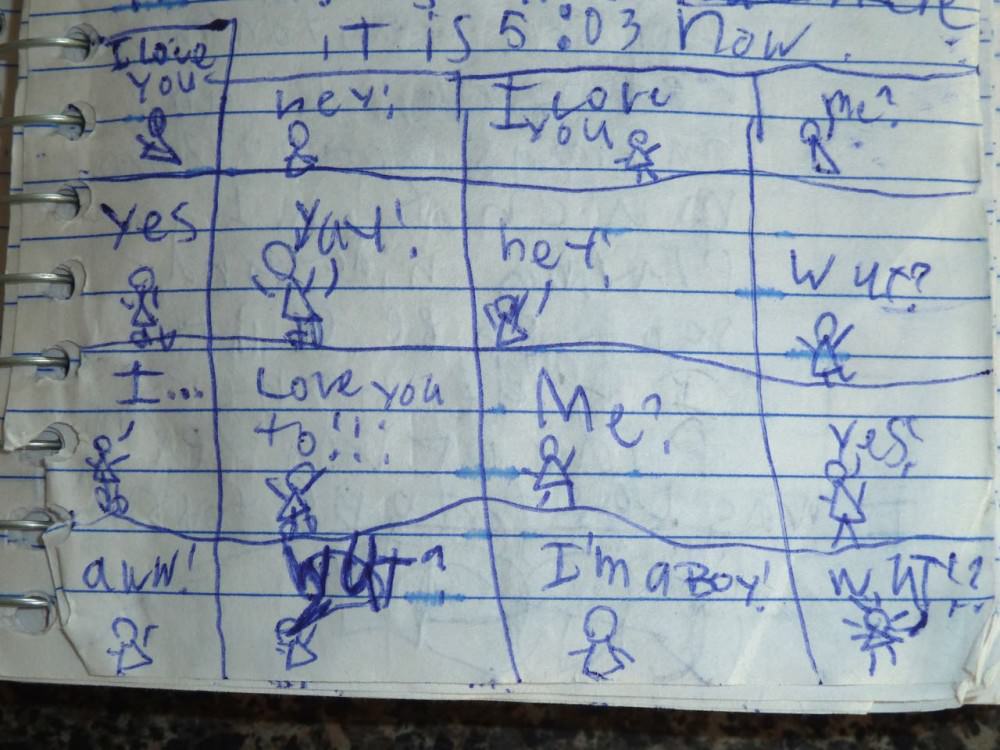 it is 5:03 Now.
I love
you
hey!
I love
you
me?
yes
yay!
hey!
wut?
I...
Love you
to!!!
Me?
yes!
aww!
WUT?
I'm a BOY!
WUT!?